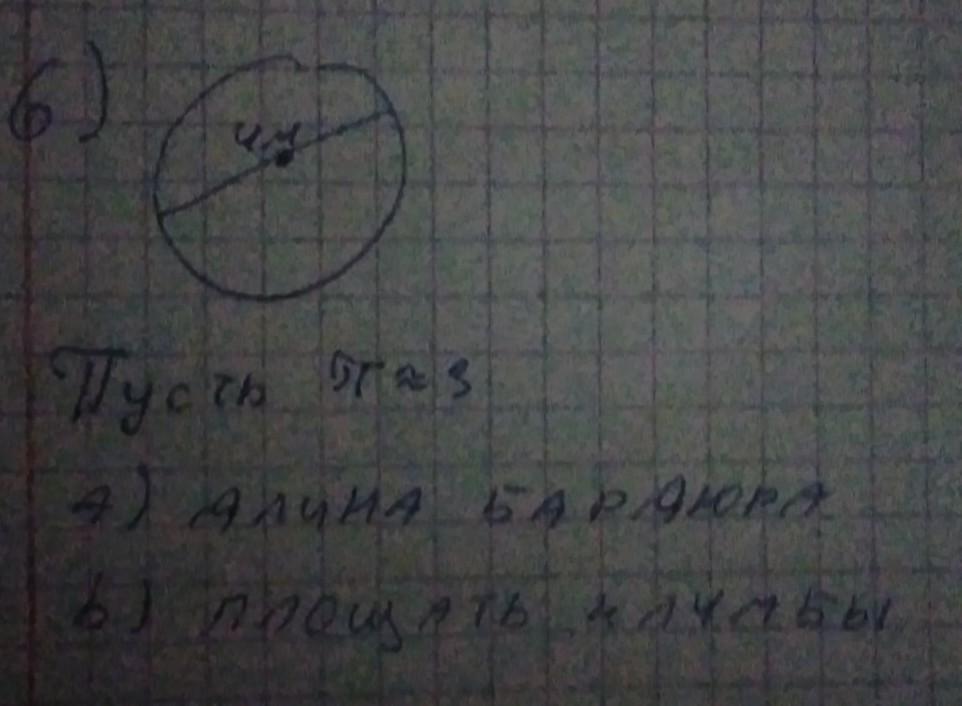 6)
4м
Пусть π≈3
а) ДЛИНА БАРДЮРА
b) ПЛОЩАТЬ КЛУМБЫ